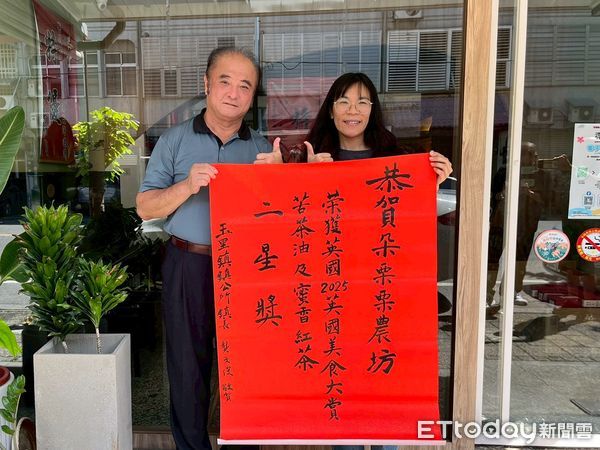 恭賀朵栗栗農坊
榮獲英國2025英國美食大賞
苦茶油及蜜香紅茶
二星獎
玉里鎮鎮公所鎮長 敬賀
ETtoday新聞雲